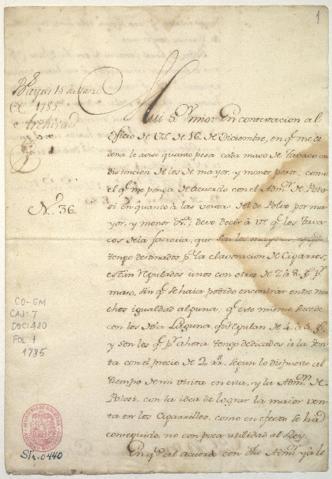 1
1785
Archivad
N.º 36.
Mui S.ºr mio: En contextacion al
Oficio de Vd. de 16 de Diciembre, en q.e me or
dena le avise quanto pesa cada mazo de Tabaco con
distincion de los de mayor, y menor porte, como
el q.e me ponga de acuerdo con el Adm.or de Poto
si en quanto à las ventas de Polvo por ma
yor, y menor devo decir à Vd. q.e los Taba
cos de la factoria, que
tengo destinados p.a la elavoracion de Cigarros,
estan regulados unos con otros de
mazo, sin q.e se haia podido encontrar entre mu
chos igualdad alguna, q.e esto mismo sucede
con los de la Laguna q.e regulan de 4. à 5.
y son los q.e p.r ahora tengo dedicados à la ven
ta con el precio de 2 rr. segun lo dispuesto al
tiempo de mi visita en esa, y la Adm.on de
Potosi, con la idea de lograr la maior ven
ta en los Cigarrillos, como en efecto se ha
conseguido no con poca utilidad al Rey.
En q.to al acuerdo con dho Adm.or y a lo
CO-GM
CAJ: 7
DOC: 440
FOL: 1
1785
Str. 0440